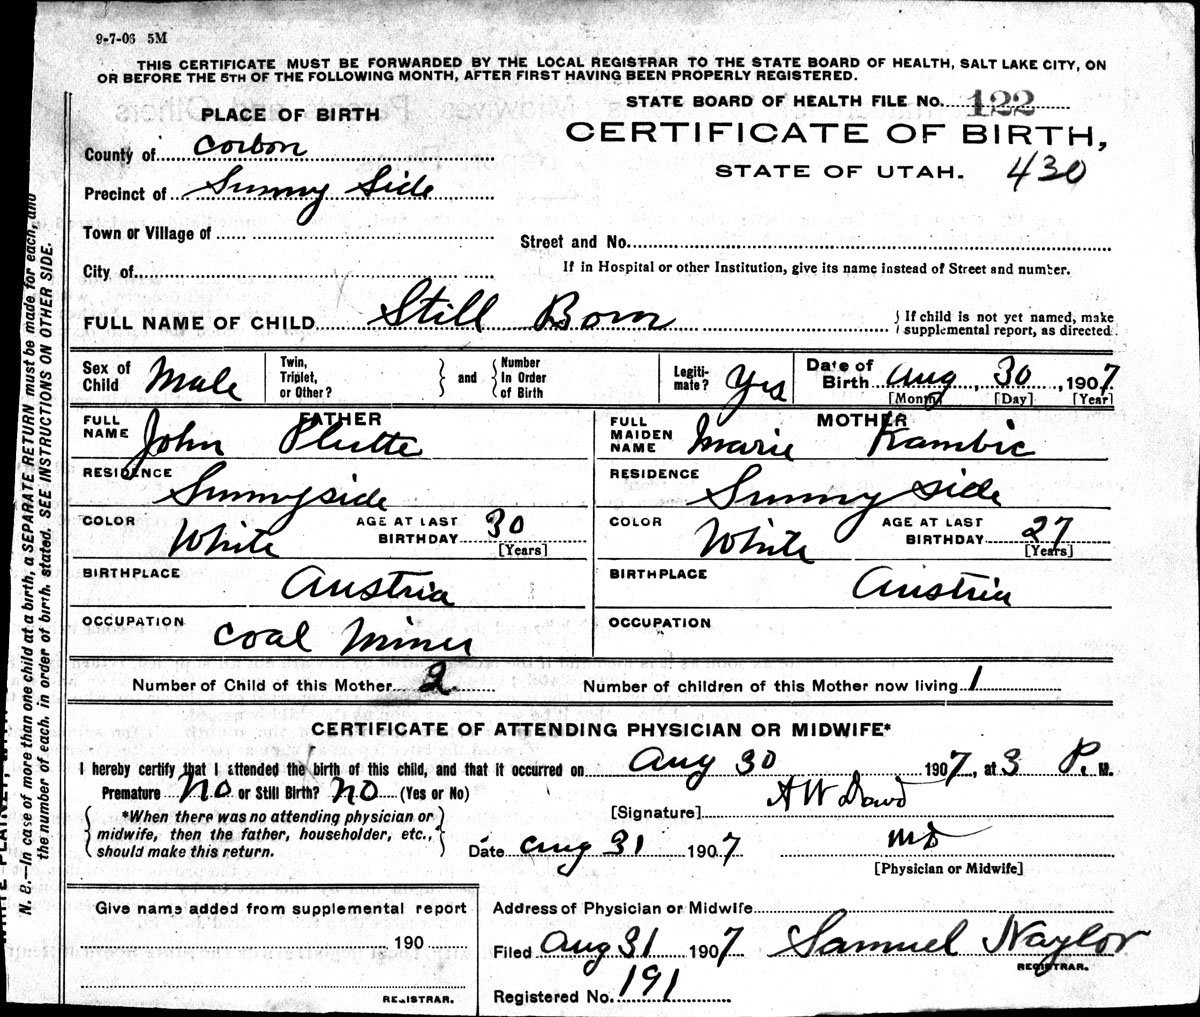 9-7-06 5M
THIS CERTIFICATE MUST BE FORWARDED BY THE LOCAL REGISTRAR TO THE STATE BOARD OF HEALTH, SALT LAKE CITY, ON
OR BEFORE THE 5TH OF THE FOLLOWING MONTH, AFTER FIRST HAVING BEEN PROPERLY REGISTERED.
STATE BOARD OF HEALTH FILE No. 122
PLACE OF BIRTH
CERTIFICATE OF BIRTH,
STATE OF UTAH. 430
County of Carbon
Precinct of Sunny Side
Town or Village of
Street and No.
City of
If in Hospital or other Institution, give its name instead of Street and number.
FULL NAME OF CHILD Still Born
{ If child is not yet named, make
supplemental report, as directed.
Sex of Child Male
Twin, Triplet, or Other? } and { Number In Order of Birth
Legiti-mate? Yes
Date of Birth Aug, 30, 1907
[Month] [Day] [Year]
FATHER
FULL NAME John Plutte
MOTHER
FULL MAIDEN NAME Marie Kambic
RESIDENCE Sunnyside
RESIDENCE Sunny side
COLOR White AGE AT LAST BIRTHDAY 30 [Years]
COLOR White AGE AT LAST BIRTHDAY 27 [Years]
BIRTHPLACE Austria
BIRTHPLACE Austria
OCCUPATION Coal Miner
OCCUPATION
Number of Child of this Mother 2 Number of children of this Mother now living 1
CERTIFICATE OF ATTENDING PHYSICIAN OR MIDWIFE*
I hereby certify that I attended the birth of this child, and that it occurred on Aug 30 1907, at 3 P. M.
Premature No or Still Birth? No (Yes or No)
*When there was no attending physician or
midwife, then the father, householder, etc.,
should make this return.
[Signature] A W Dowd
Date Aug 31 1907 MD
[Physician or Midwife]
Give name added from supplemental report
190
REGISTRAR.
Address of Physician or Midwife
Filed Aug 31 1907 Samuel Naylor
REGISTRAR.
Registered No. 191
N. B.—In case of more than one child at a birth, a SEPARATE RETURN must be made for each, and
the number of each, in order of birth, stated. SEE INSTRUCTIONS ON OTHER SIDE.